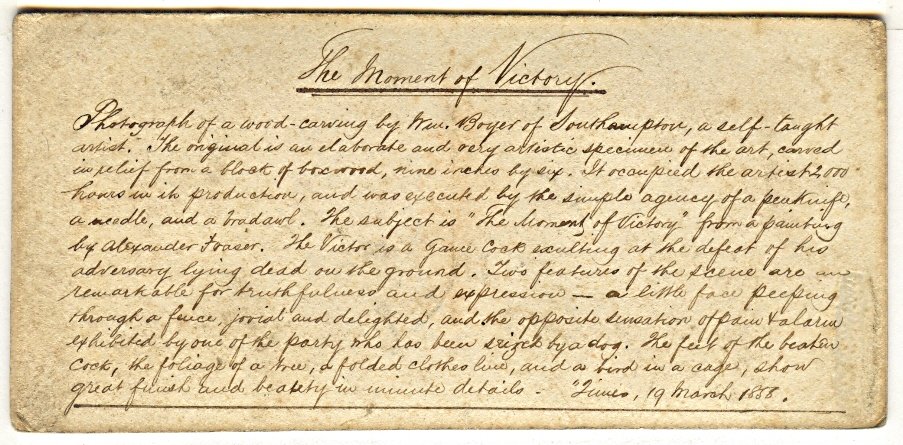 The Moment of Victory.
Photograph of a wood-carving by Wm. Boyer of Southampton, a self-taught
artist. The original is an elaborate and very artistic specimen of the art, carved
in relief from a block of boxwood, nine inches by six. It occupied the artist 2000
hours in its production, and was executed by the simple agency of a penknife,
a needle, and a bradawl. The subject is "The Moment of Victory" from a painting
by Alexander Fraser. The Victor is a Game Cock exulting at the defeat of his
adversary lying dead on the ground. Two features of the scene are
remarkable for truthfulness and expression — a little face peeping
through a fence, jovial and delighted, and the opposite sensation of pain & alarm
exhibited by one of the party who has been seized by a dog. The feet of the beaten
Cock, the foliage of a tree, a folded clothes line, and a bird in a cage, show
great finish and beauty in minute details - "Times, 19 March 1888.